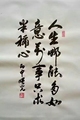 人生哪能多如
意万事只求
半称心